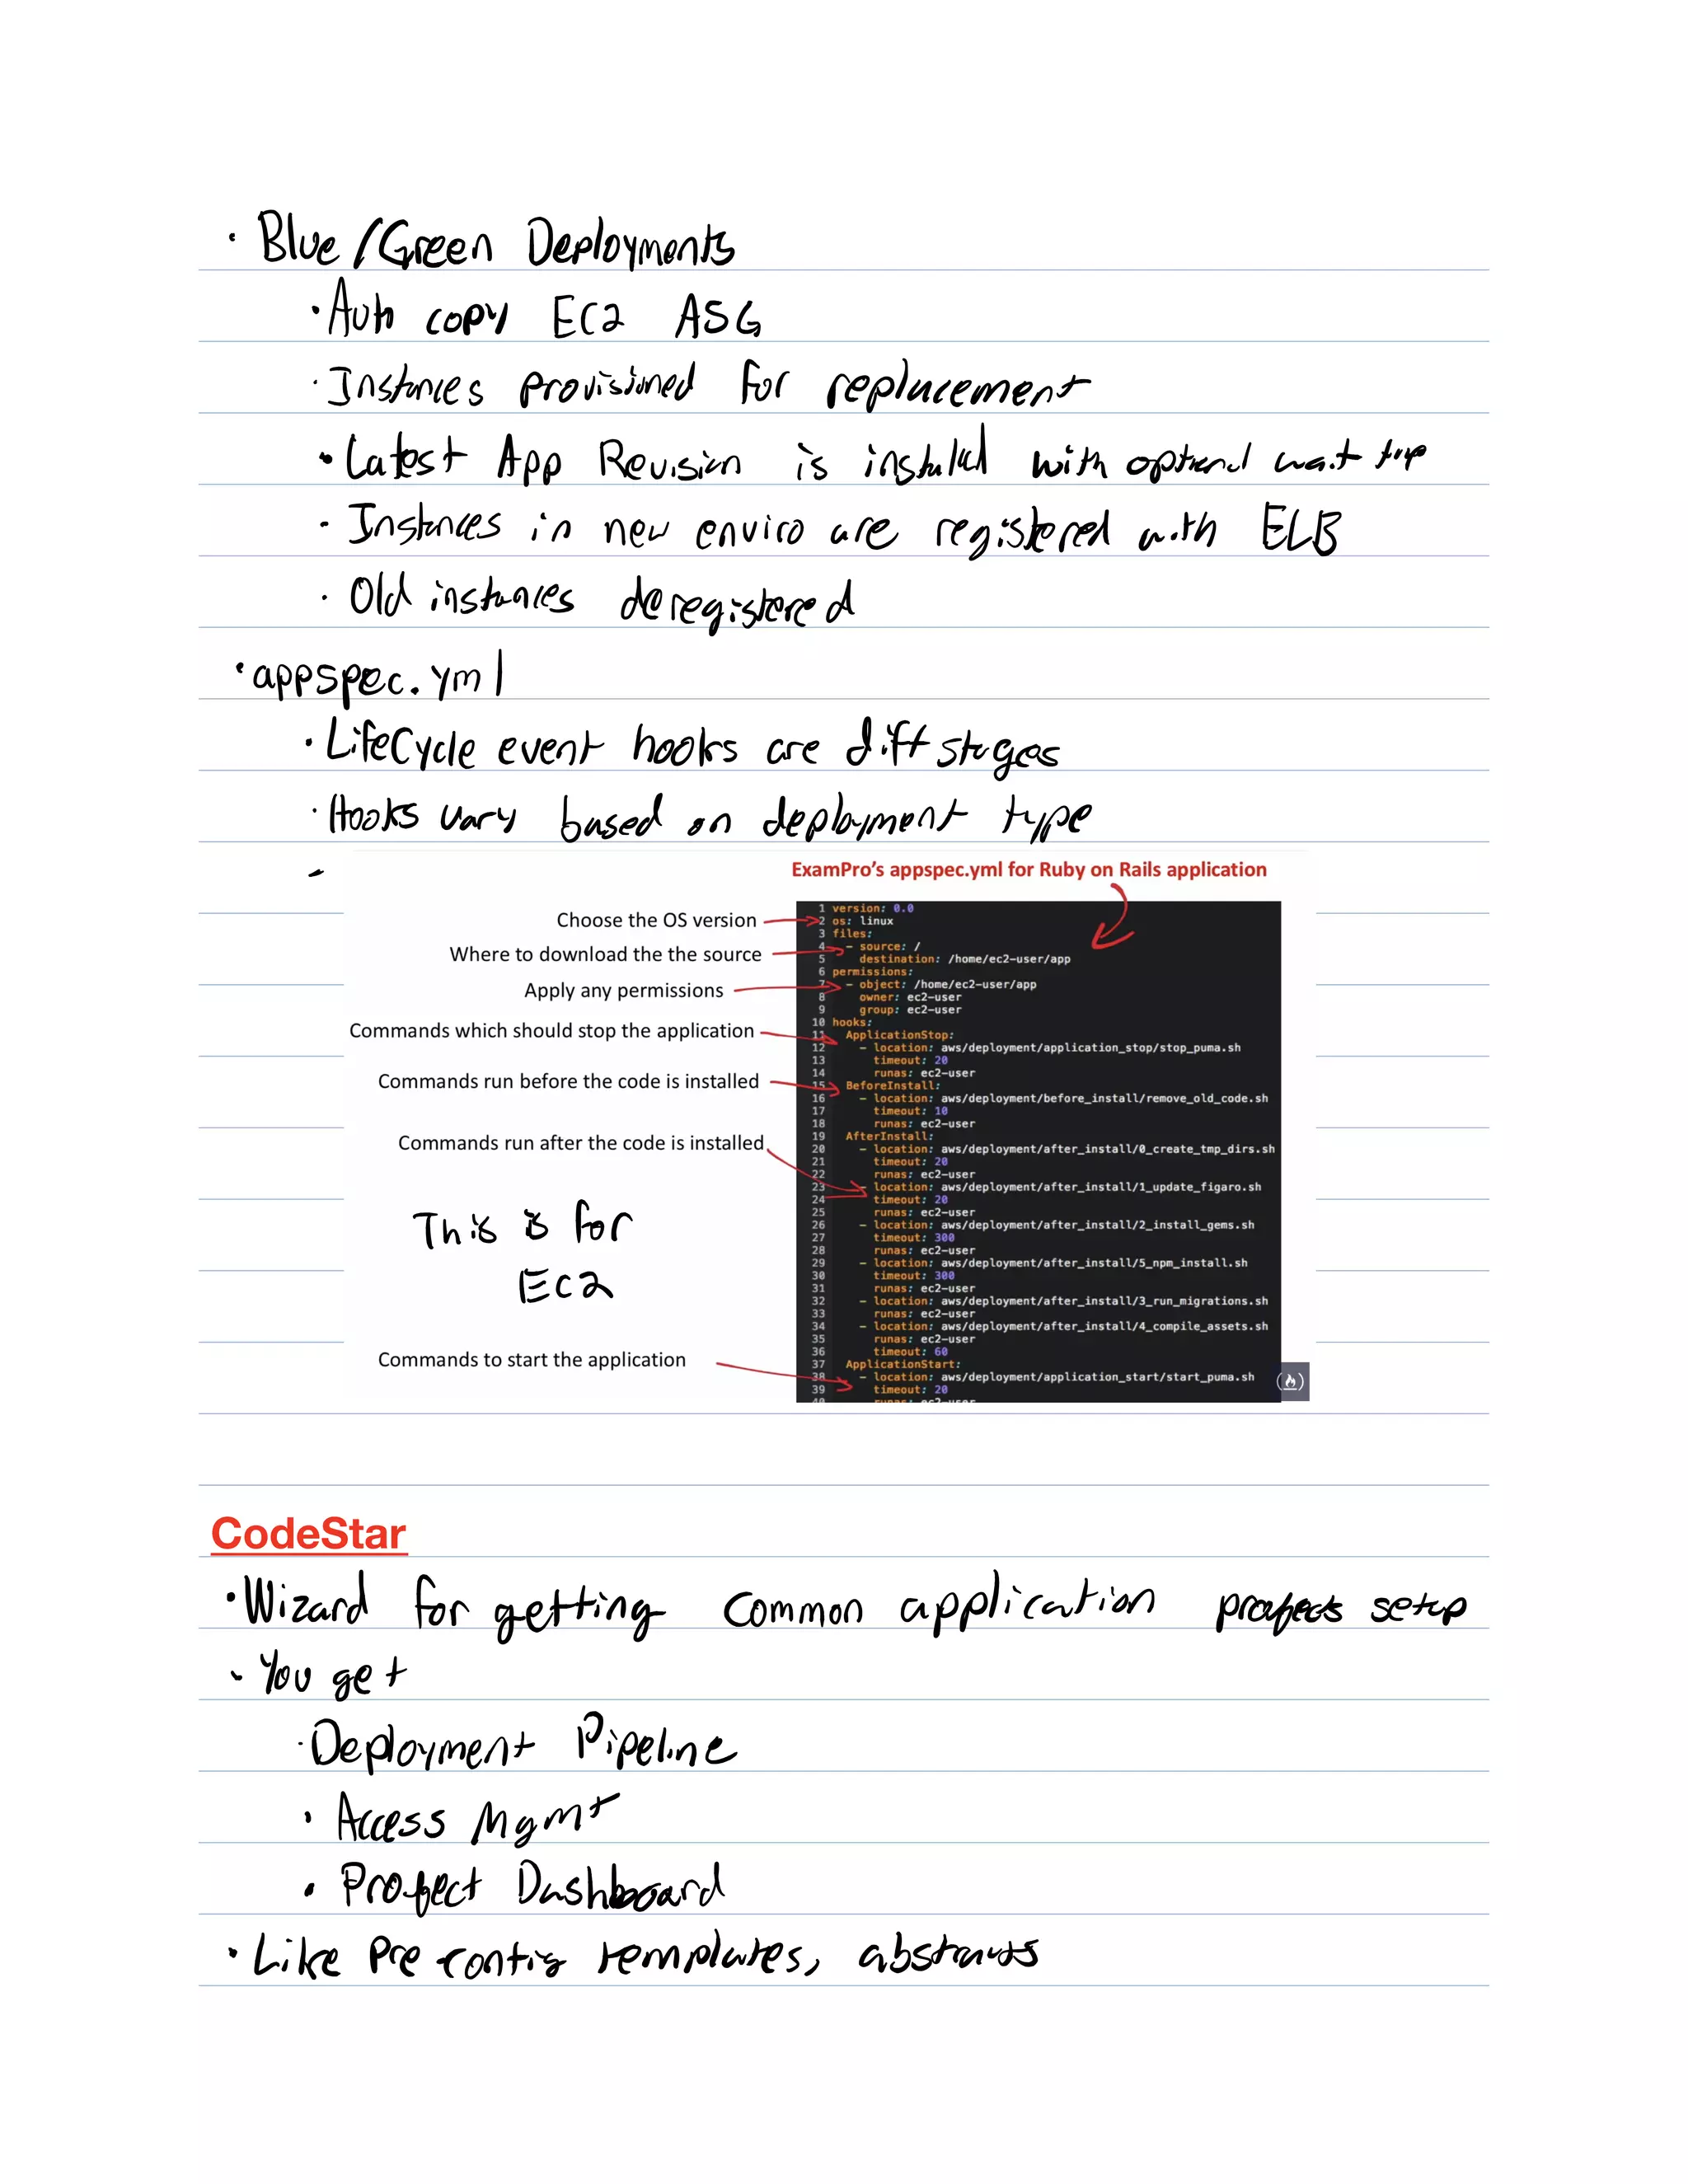 · Blue/Green Deployments
· Auto copy EC2 ASG
· Instances provisioned for replacement
· Latest App Revision is installed with optional wait
· Instances in new enviro are registered with ELB
· Old instances deregistered
· appspec.yml
· LifeCycle event hooks are diff stages
· Hooks vary based on deployment type
ExamPro's appspec.yml for Ruby on Rails application
Choose the OS version
Where to download the the source
Apply any permissions
Commands which should stop the application
Commands run before the code is installed
Commands run after the code is installed
This is for
EC2
Commands to start the application
1 version: 0.0
2 os: linux
3 files:
4 - source: /
5 destination: /home/ec2-user/app
6 permissions:
7 - object: /home/ec2-user/app
8 owner: ec2-user
9 group: ec2-user
10 hooks:
11 ApplicationStop:
12 - location: aws/deployment/application_stop/stop_puma.sh
13 timeout: 20
14 runas: ec2-user
15 BeforeInstall:
16 - location: aws/deployment/before_install/remove_old_code.sh
17 timeout: 10
18 runas: ec2-user
19 AfterInstall:
20 - location: aws/deployment/after_install/0_create_tmp_dirs.sh
21 timeout: 20
22 runas: ec2-user
23 - location: aws/deployment/after_install/1_update_figaro.sh
24 timeout: 20
25 runas: ec2-user
26 - location: aws/deployment/after_install/2_install_gems.sh
27 timeout: 300
28 runas: ec2-user
29 - location: aws/deployment/after_install/5_npm_install.sh
30 timeout: 300
31 runas: ec2-user
32 - location: aws/deployment/after_install/3_run_migrations.sh
33 runas: ec2-user
34 - location: aws/deployment/after_install/4_compile_assets.sh
35 runas: ec2-user
36 timeout: 60
37 ApplicationStart:
38 - location: aws/deployment/application_start/start_puma.sh
39 timeout: 20
40 runas: ec2-user
CodeStar
· Wizard for getting common application projects setup
· You get
· Deployment Pipeline
· Access Mgmt
· Project Dashboard
· Like Pre config templates, abstracts